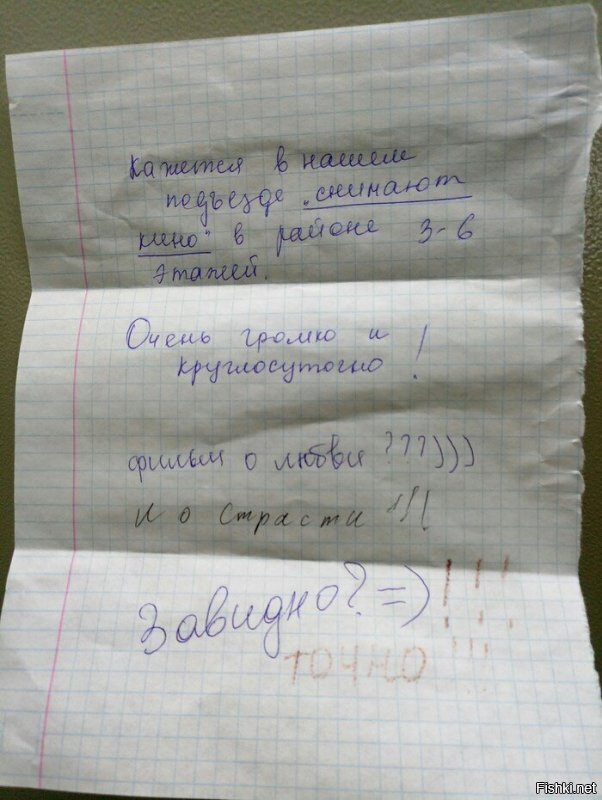 Кажется в нашем
подъезде „снимают
кино" в районе 3-6
этажей.
Очень громко и
круглосуточно !
фильм о любви ???)))
и о страсти !!!
Завидно? =) !!!
ТОЧНО !!!
Fishki.net